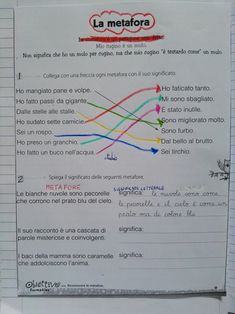 La metafora
Mio cugino è un mulo.
Non significa che ho un mulo per cugino, ma che mio cugino "è testardo come" un mulo.
1 Collega con una freccia ogni metafora con il suo significato.
Ho mangiato pane e volpe.
Ho fatto passi da gigante
Dalle stelle alle stalle.
Ho sudato sette camicie
Sei un rospo.
Ho preso un granchio.
Ho fatto un buco nell'acqua.
Ho faticato tanto.
Mi sono sbagliato.
È stato inutile.
Sono migliorato molto.
Sono furbo.
Dal bello al brutto.
Sei lirchio.
2 Spiega il significato delle seguenti metafore.
METAFORE
SIGNIFICATO LETTERALE
Le bianche nuvole sono pecorelle
che corrono nel prato blu del cielo.
significa: le nuvole sono come
le pecorelle e il cielo è come un
prato ma di colore blu
Il suo racconto è una cascata di
parole misteriose e coinvolgenti.
significa:
I baci della mamma sono caramelle
che addolciscono l'anima.
significa: